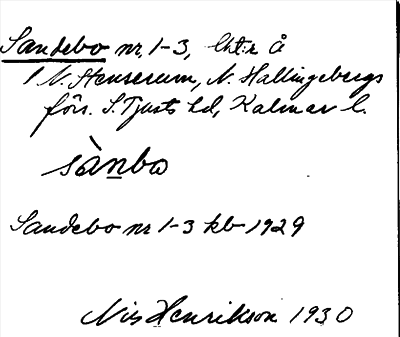 Sandebo nr 1-3, lht:r å
1 N. Stenserum, N. Hallingebergs
förs. S. Tjusts hd, Kalmar l.
sànbo
Sandebo nr 1-3 kb 1929
Nis Henrikson 1930